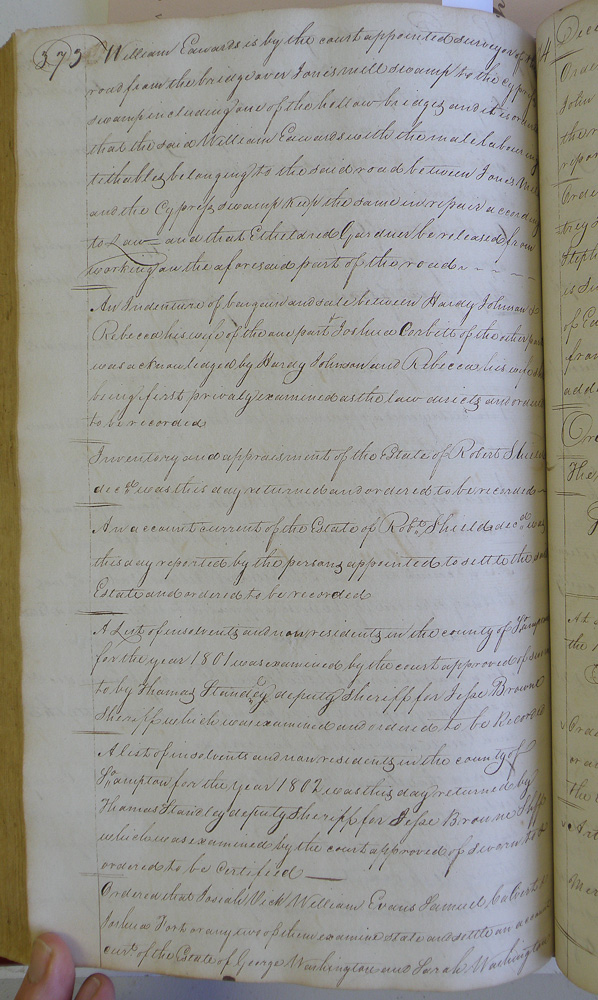 373 William Edwards is by the court appointed surveyor of
road from the bridge over Jones mill swamp to the Cypress
swamp including one of the hollow bridges and it is
that the said William Edwards with the male labouring
tithables belonging to the said road between Jones
and the Cypress swamp keep the same in repair according
to Law and that Etheldred Gardner be released from
working on the aforesaid part of the road
An Indenture of bargain and sale between Hardy Johnson &
Rebecca his wife of the one part & Joshua Corbett of the other
was acknowledged by Hardy Johnson and Rebecca his wife
being first privaly examined as the law directs and
to be recorded
Inventory and appraisment of the Estate of Robert
decd. was this day returned and ordered to be recorded
An account current of the Estate of Robt. Shield decd. was
this day reported by the persons appointed to settle the said
Estate and ordered to be recorded
A List of insolvents and non residents in the county of
for the year 1801 was examined by the court approved of
to by Thomas Standley deputy Sheriff for Jesse Browne
Sheriff which was examined and ordered to be Recorded
A list of insolvents and non residents in the county of
So.ampton for the year 1802 was this day returned by
Thomas Standley deputy Sheriff for Jesse Browne
which was examined by the court approved of sworn to &
ordered to be Certified
Ordered that Josiah Vick William Evans Samuel Calvert
Joshua Fort or any two of them examine state and settle an
curt. of the Estate of George Washington and Sarah